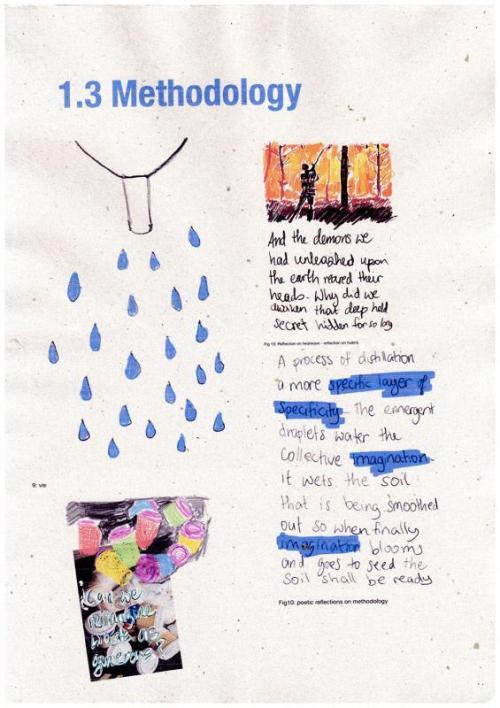 1.3 Methodology
And the demons we
had unleashed upon
the earth reared their
heads. Why did we
awaken that deep held
secret hidden for so long
Fig 10: Reflection on heatwave - reflection on hubris
A process of distillation
a more specific layer of
Specificity. The emergent
droplets water the
Collective imagination.
it wets the soil
that is being smoothed
out so when finally
imagination blooms
and goes to seed the
soil shall be ready
Fig10: poetic reflections on methodology
9:
Can we
reimagine
waste as
generous?